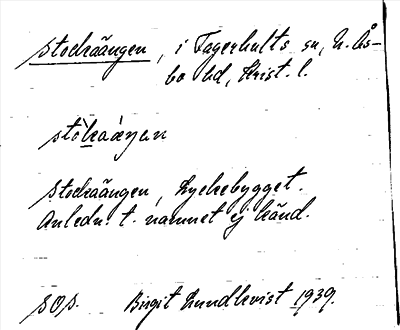 Stockaängen, i Fagerhults sn, N. Ås-
bo hd, Krist. l.
stòkaáŋan
Stockaängen, Lyckebygget.
Anledn. t. namnet ej känd.
SOS. Birgit Lundkvist 1939.